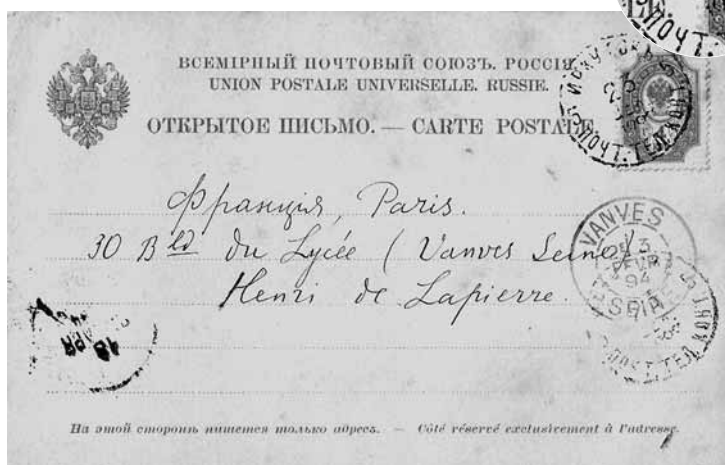 ВСЕМІРНЫЙ ПОЧТОВЫЙ СОЮЗЪ. РОССІЯ.
UNION POSTALE UNIVERSELLE. RUSSIE.
ОТКРЫТОЕ ПИСЬМО. — CARTE POSTALE.
Франція, Paris.
30 Bld du Lycée (Vanves Seine)
Henri de Lapierre.
VANVES
FEVR
94
SEINE
На этой сторонѣ пишется только адресъ. — Côté réservé exclusivement à l'adresse.